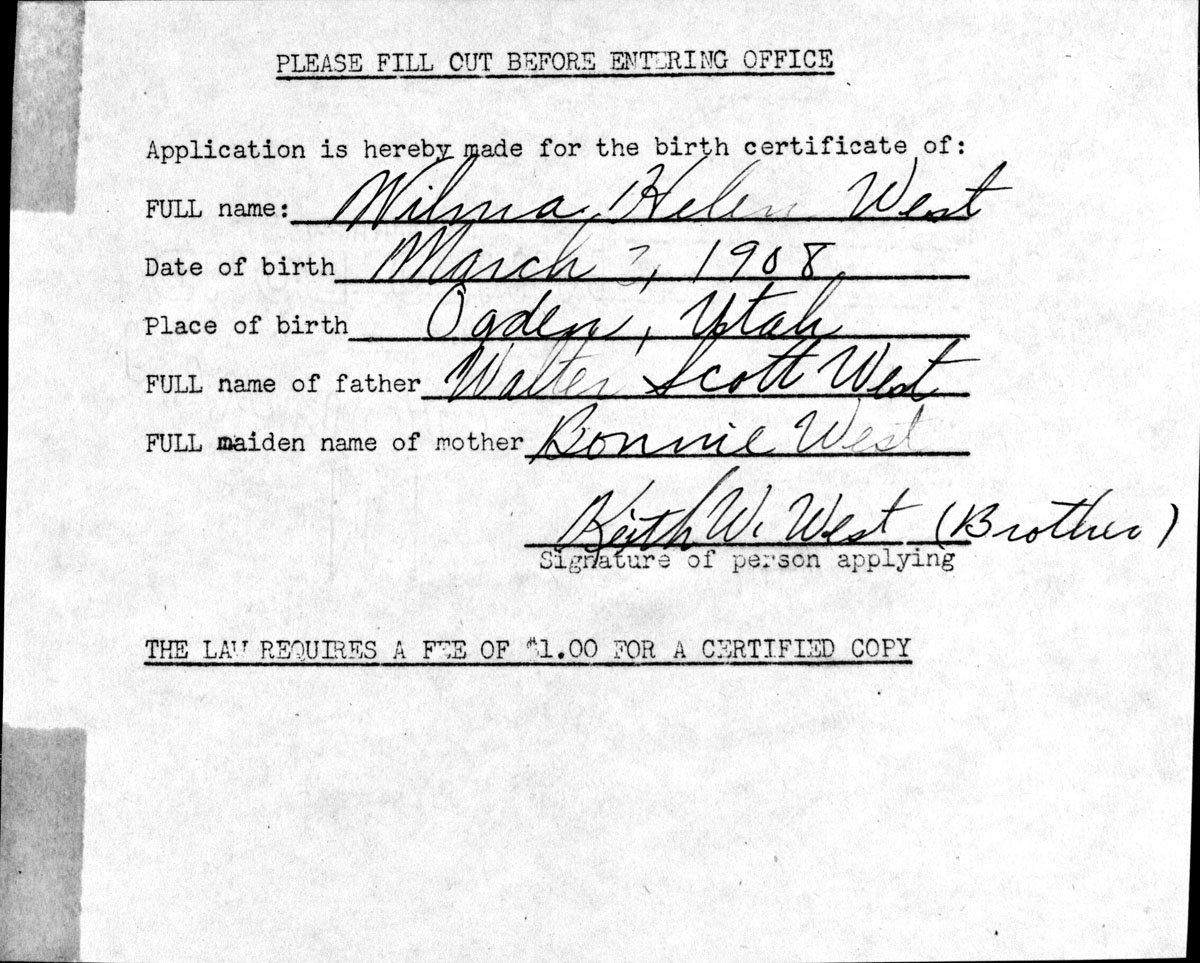 PLEASE FILL OUT BEFORE ENTERING OFFICE
Application is hereby made for the birth certificate of:
FULL name: Wilma Helen West
Date of birth March 3, 1908
Place of birth Ogden, Utah
FULL name of father Walter Scott West
FULL maiden name of mother Bonnie West
Keith W. West (Brother)
Signature of person applying
THE LAW REQUIRES A FEE OF $1.00 FOR A CERTIFIED COPY